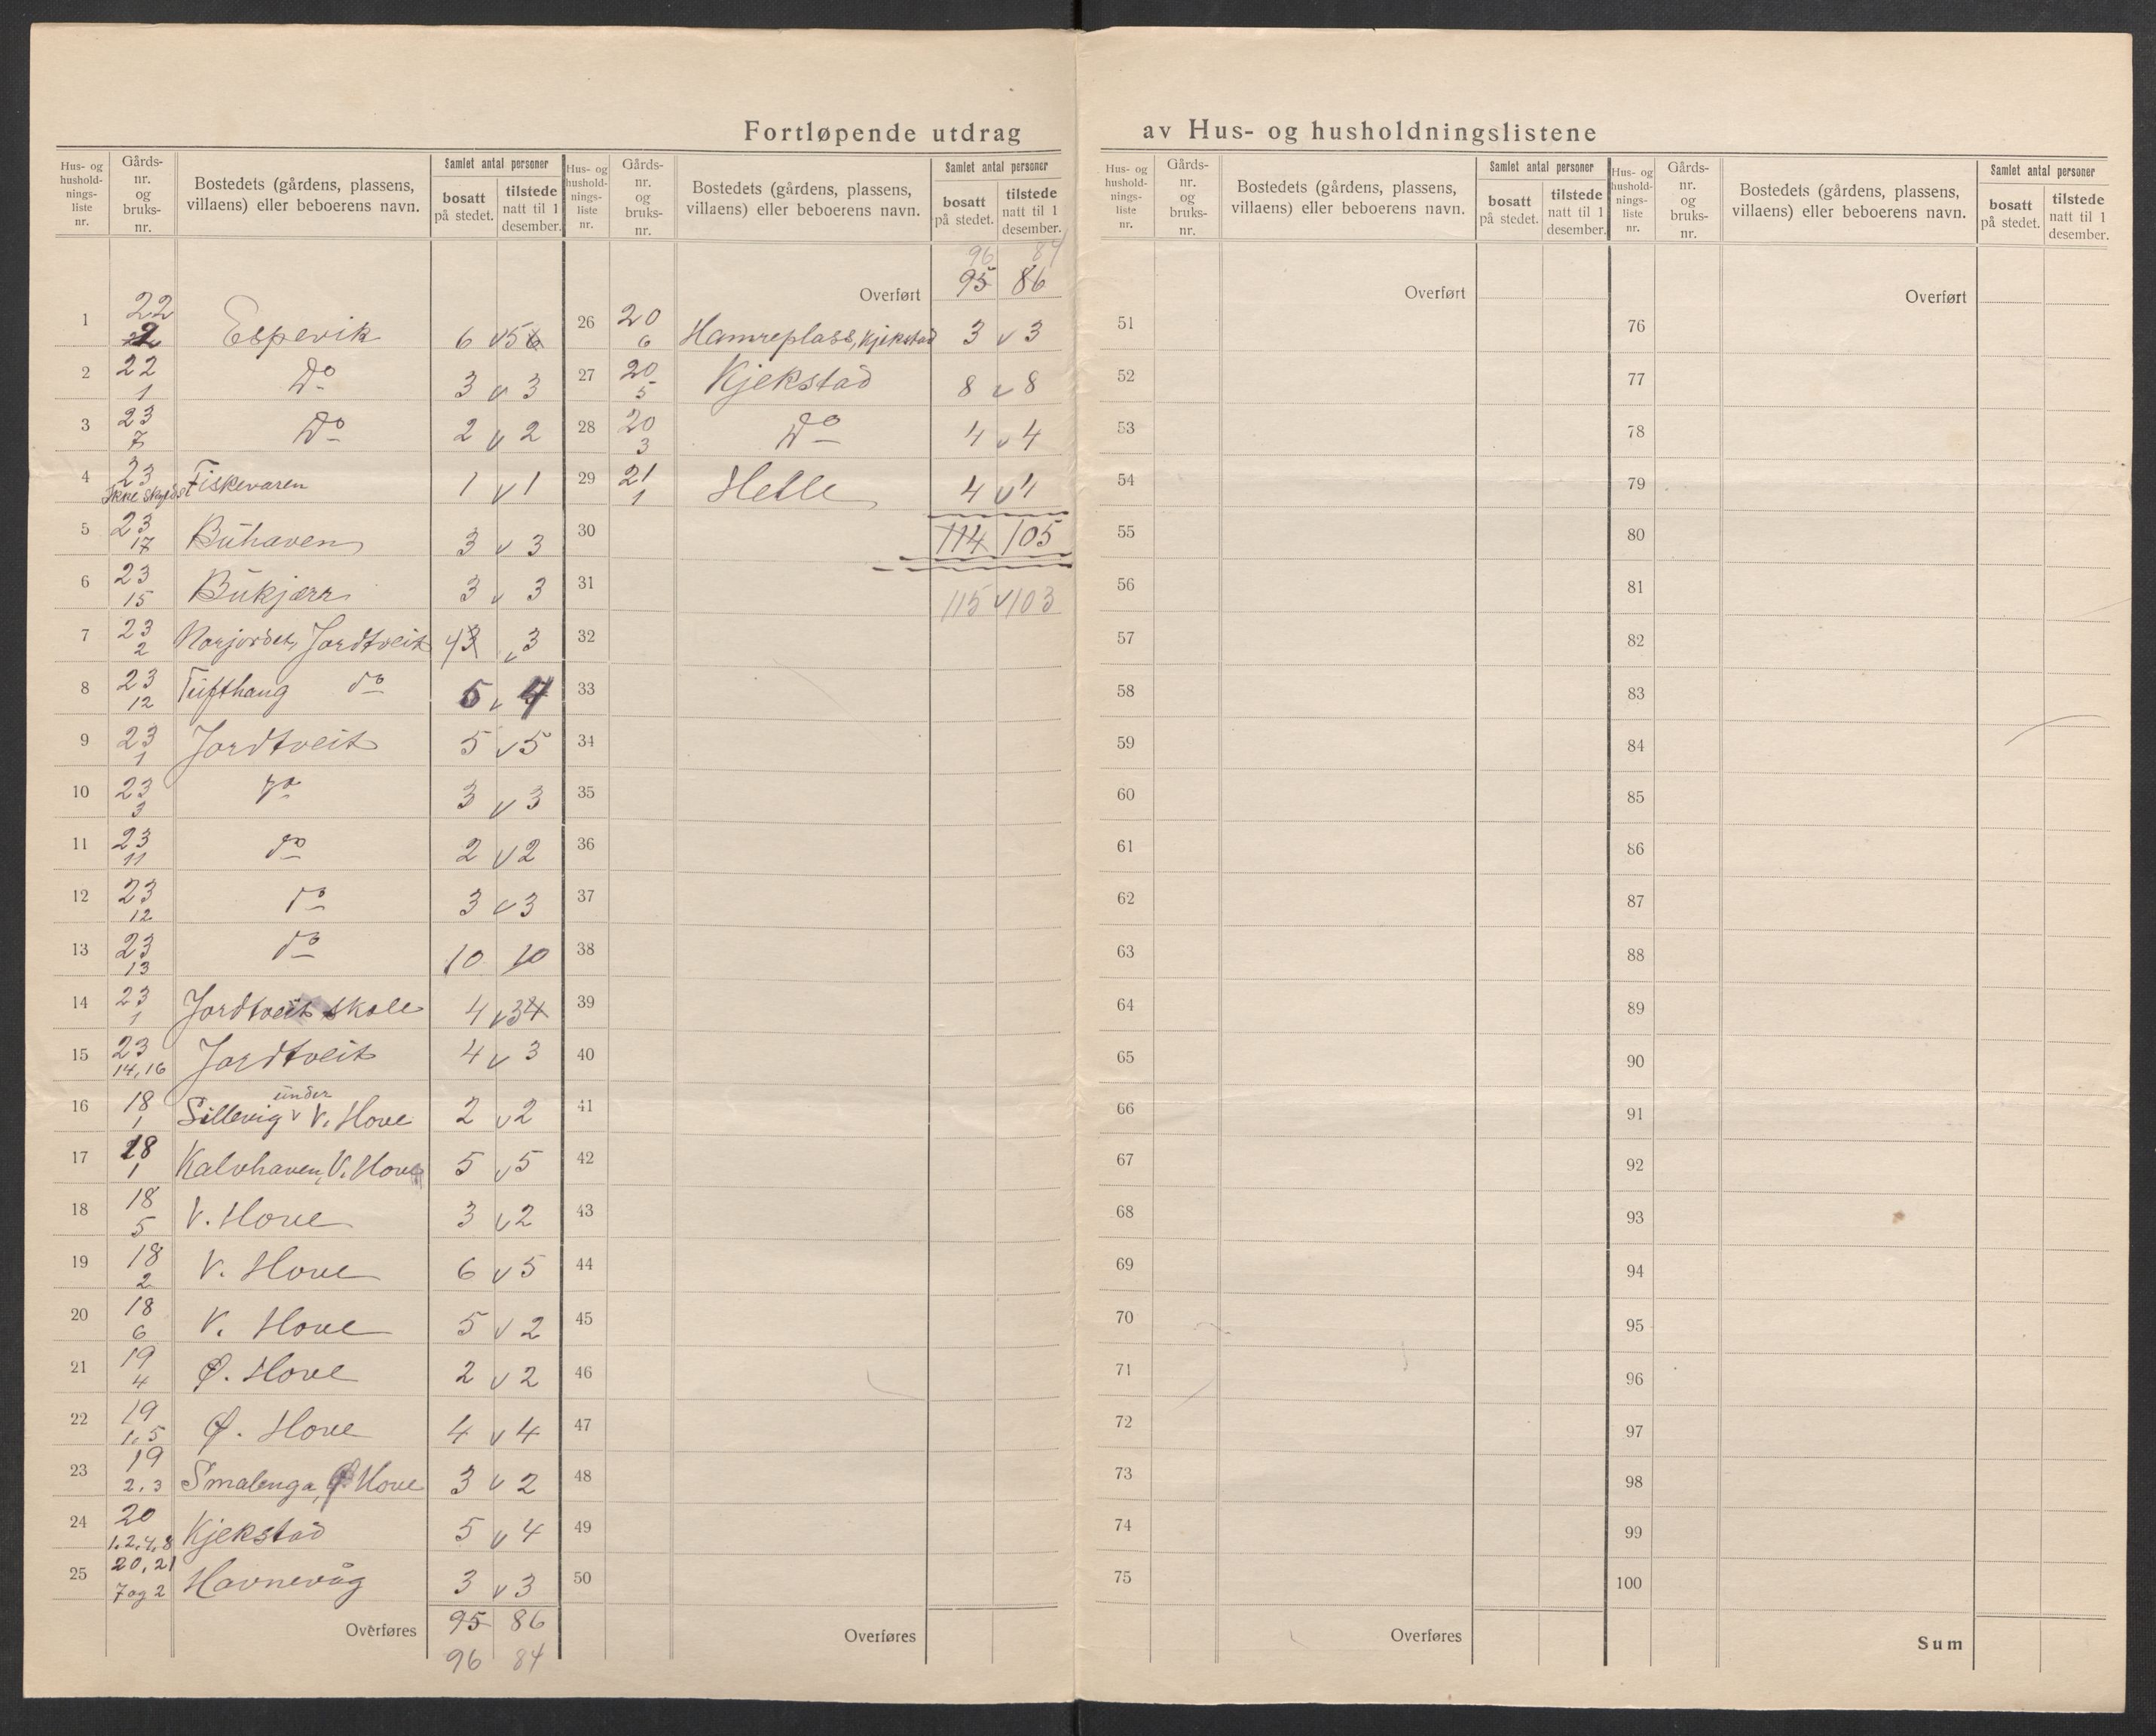 Fortløpende utdrag av Hus- og husholdningslistene
Hus- og hushold-nings-liste nr. | Gårds-nr. og bruks-nr. | Bostedets (gårdens, plassens, villaens) eller beboerens navn. | Samlet antal personer | bosatt på stedet. | tilstede natt til 1 desember.
1 | 22 | Espevik | 6 v 5 6
2 | 22 1 | Do | 3 v 3
3 | 23 7 | Do | 2 v 2
4 | 23 Ikke skyldst | Fiskevaren | 1 v 1
5 | 23 17 | Buhaven | 3 v 3
6 | 23 15 | Bukjærr | 3 v 3
7 | 23 2 | Norjordet, Jordtveit | 4 3 v 3
8 | 23 12 | Tufthaug do | 5 v 4
9 | 23 1 | Jordtveit | 5 v 5
10 | 23 3 | do | 3 v 3
11 | 23 11 | do | 2 v 2
12 | 23 12 | do | 3 v 3
13 | 23 13 | do | 10 10
14 | 23 1 | Jordtveit skole | 4 v 3 4
15 | 23 14, 16 | Jordtveit | 4 v 3
16 | 18 1 | Sillevig under V. Hove | 2 v 2
17 | 18 1 | Kalvhaven, V. Hove | 5 v 5
18 | 18 5 | V. Hove | 3 v 2
19 | 18 2 | V. Hove | 6 v 5
20 | 18 6 | V. Hove | 5 v 2
21 | 19 4 | Ø. Hove | 2 v 2
22 | 19 1, 5 | Ø. Hove | 4 v 4
23 | 19 2, 3 | Smalenga, Ø. Hove | 3 v 2
24 | 20 1, 2, 4, 8 | Kjekstad | 5 v 4
25 | 20, 21 7 og 2 | Havnevåg | 3 v 3
Overføres | 95 | 86
96 | 84
Hus- og hushold-nings-liste nr. | Gårds-nr. og bruks-nr. | Bostedets (gårdens, plassens, villaens) eller beboerens navn. | Samlet antal personer | bosatt på stedet. | tilstede natt til 1 desember.
96 | 84
Overført | 95 | 86
26 | 20 6 | Hamreplass, Kjekstad | 3 v 3
27 | 20 5 | Kjekstad | 8 v 8
28 | 20 3 | Do | 4 v 4
29 | 21 1 | Helle | 4 v 4
30 | 114 | 105
31 | 115 v 103
32
33
34
35
36
37
38
39
40
41
42
43
44
45
46
47
48
49
50
Overføres
Hus- og hushold-nings-liste nr. | Gårds-nr. og bruks-nr. | Bostedets (gårdens, plassens, villaens) eller beboerens navn. | Samlet antal personer | bosatt på stedet. | tilstede natt til 1 desember.
Overført
51
52
53
54
55
56
57
58
59
60
61
62
63
64
65
66
67
68
69
70
71
72
73
74
75
Overføres
Hus- og hushold-nings-liste nr. | Gårds-nr. og bruks-nr. | Bostedets (gårdens, plassens, villaens) eller beboerens navn. | Samlet antal personer | bosatt på stedet. | tilstede natt til 1 desember.
Overført
76
77
78
79
80
81
82
83
84
85
86
87
88
89
90
91
92
93
94
95
96
97
98
99
100
Sum